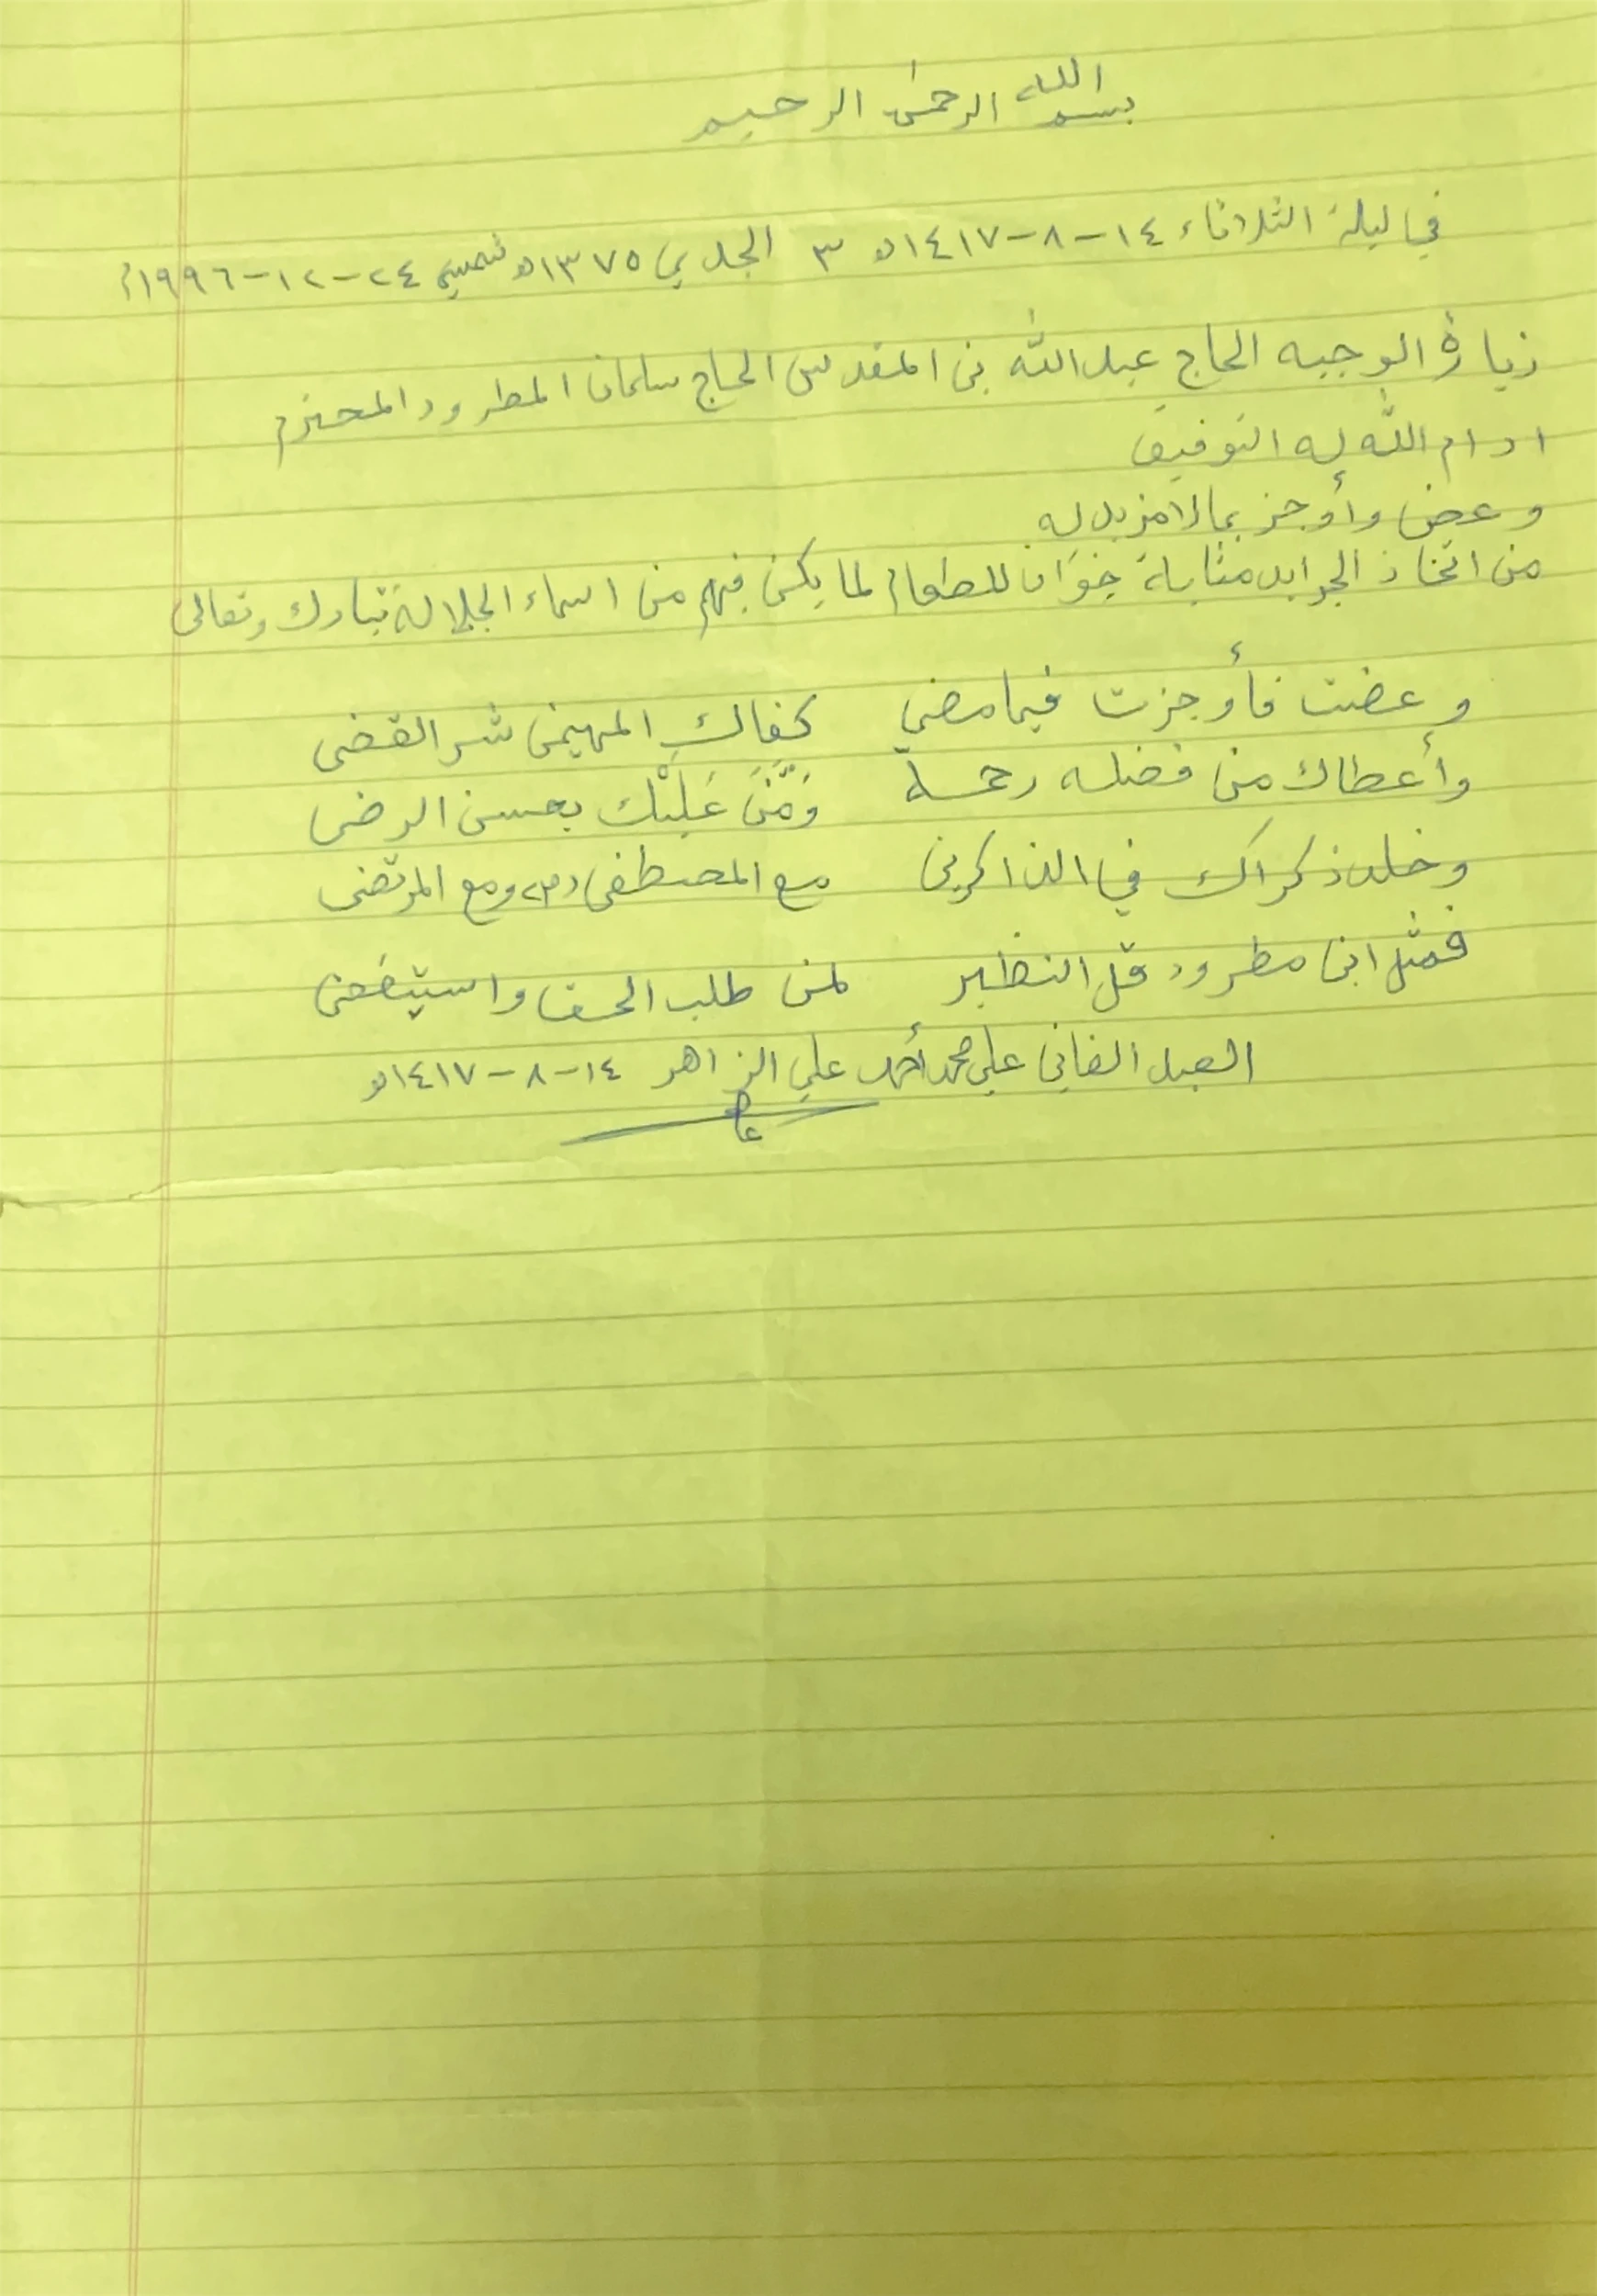 بسم الله الرحمن الرحيم
في ليلة الثلاثاء ١٤-٨-١٤١٧هـ ٣ الجدي ١٣٧٥هـ شمسي ٢٤-١٢-١٩٩٦م
زيارة الوجيه الحاج عبدالله بن المقدس الحاج سلمان المطرود المحترم
ادام الله له التوفيق
وعض وأوجز بما لا مزيد له
من اتخاذ الجرايد مثابة خوان للطعام لما يكن فيهم من اسماء الجلالة تبارك وتعالى
وعضت فأوجزت فيما مضى كفاك المهيمن شر القضى
وأعطاك من فضله رحمة وَمَنَّ عَلَيْك بحسن الرضى
وخلد ذكراك في الذاكرين مع المصطفى (ص) ومع المرتضى
فمثل ابن مطرود قل النظير لمن طلب الحق واستيضضى
العبد الفاني علي محمد أحمد علي الزاهر ١٤-٨-١٤١٧هـ